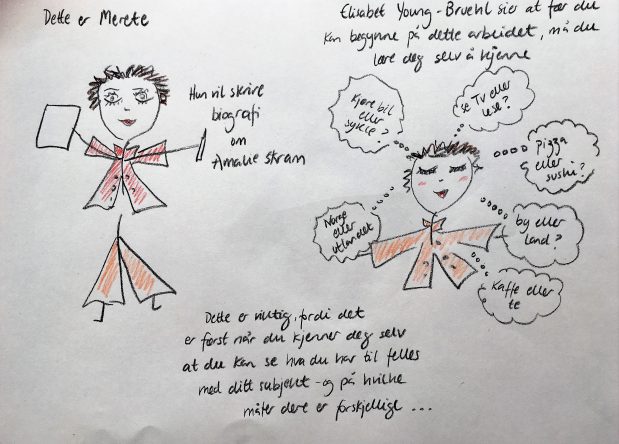 Dette er Merete
Hun vil skrive
biografi
om
Amalie Skram
Elisabet Young-Bruehl sier at før du
kan begynne på dette arbeidet, må du
lære deg selv å kjenne
Kjøre bil
eller
sykle?
Se TV eller
lese?
Pizza
eller
sushi?
Norge
eller
utlandet
by eller
land?
Kaffe eller
te
Dette er viktig, fordi det
er først når du kjenner deg selv
at du kan se hva du har til felles
med ditt subjekt - og på hvilke
måter dere er forskjellige ...